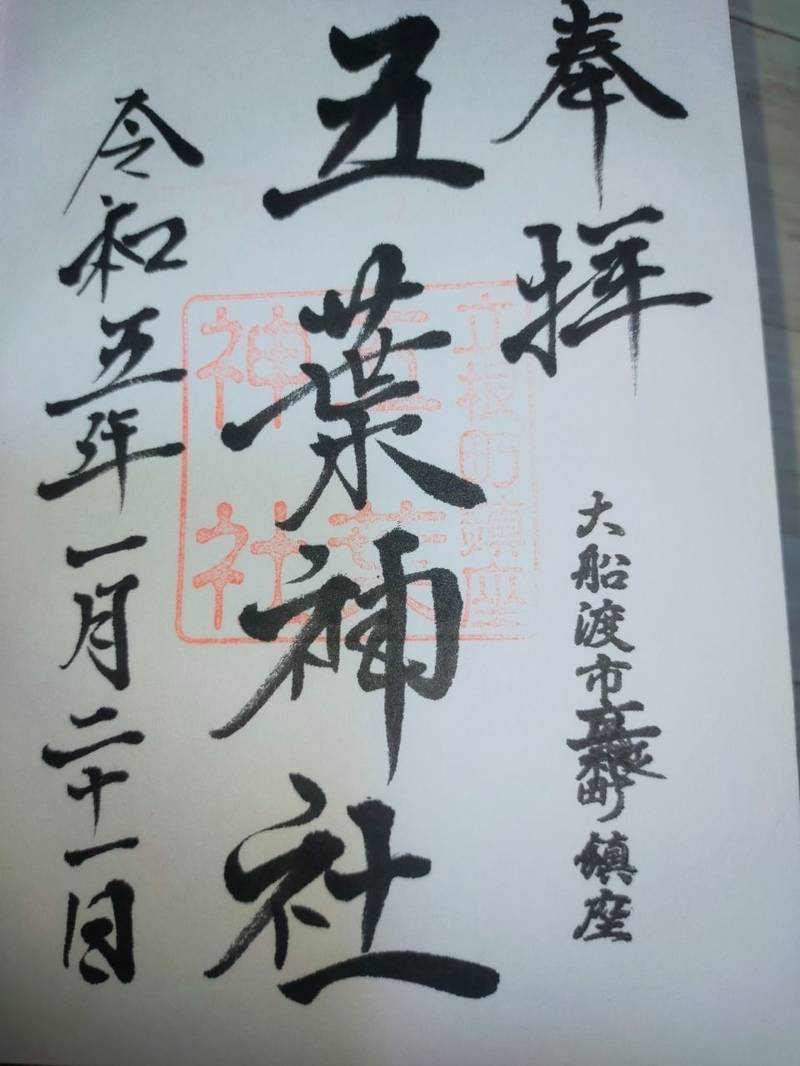 奉拝
大船渡市立根町鎮座
五葉神社
令和五年一月二十一日
立根町鎮座
五葉
神社